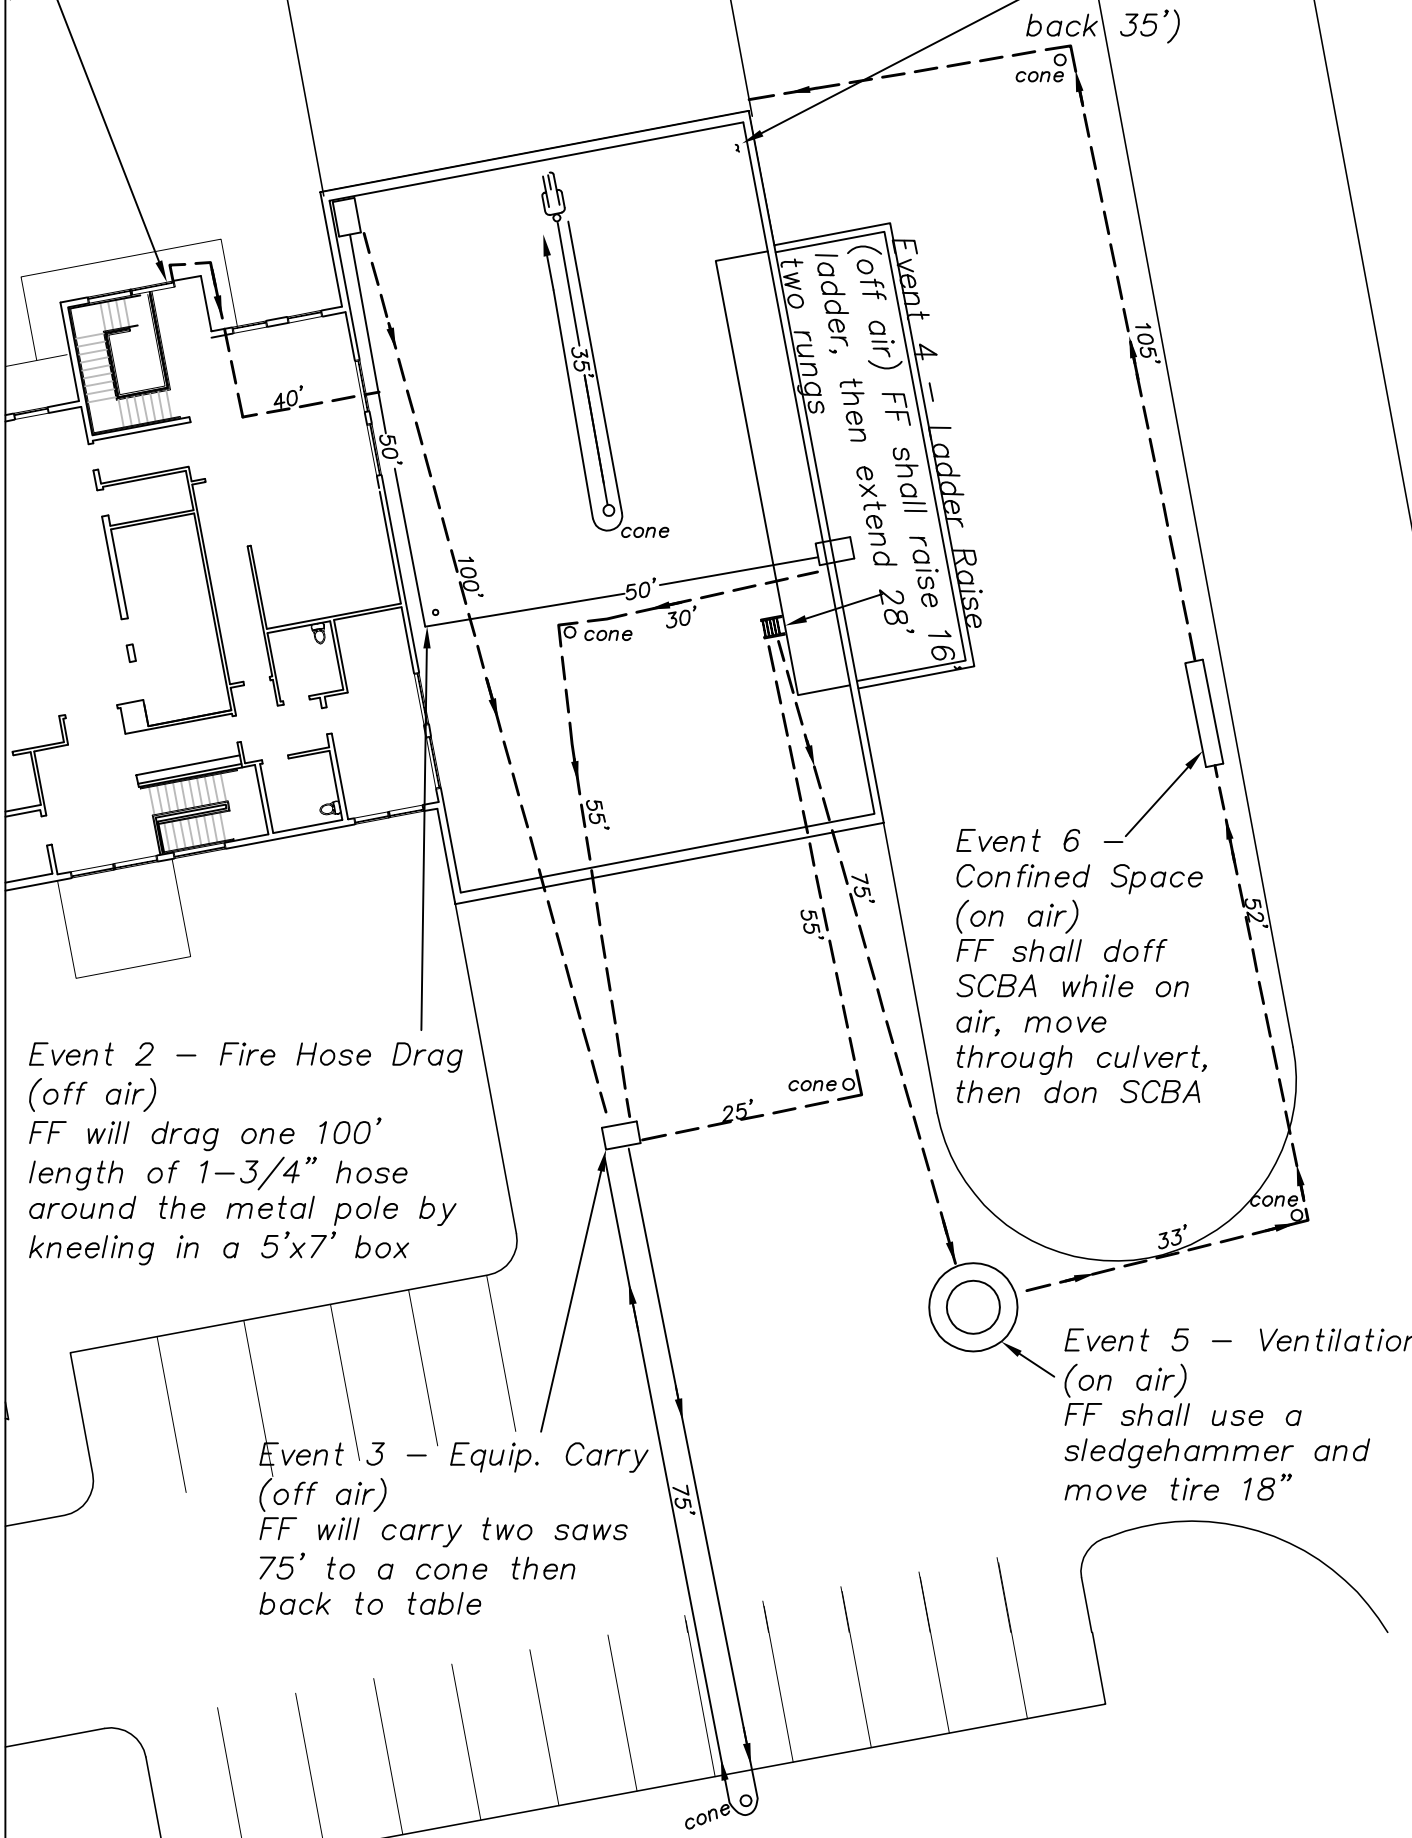 back 35’)
cone
105’
Event 4 – Ladder Raise
(off air) FF shall raise 16’
ladder, then extend 28’
two rungs
35’
40’
50’
cone
100’
50’
30’
cone
55’
75’
55’
Event 6 –
Confined Space
(on air)
FF shall doff
SCBA while on
air, move
through culvert,
then don SCBA
52’
Event 2 – Fire Hose Drag
(off air)
FF will drag one 100’
length of 1–3/4” hose
around the metal pole by
kneeling in a 5’x7’ box
cone
25’
cone
33’
Event 5 – Ventilation
(on air)
FF shall use a
sledgehammer and
move tire 18”
Event 3 – Equip. Carry
(off air)
FF will carry two saws
75’ to a cone then
back to table
75’
cone